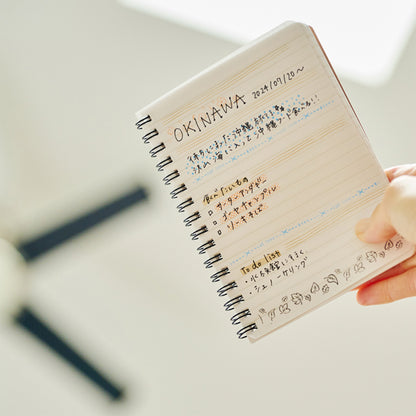 OKINAWA 2024/07/20〜
待ちに待った沖縄旅行!!
海に入って沖縄フード食べる!!
食べたいもの
□ サーターアンダギー
□ ゴーヤーチャンプル
□ ソーキそば
To do list
・シュノーケリング